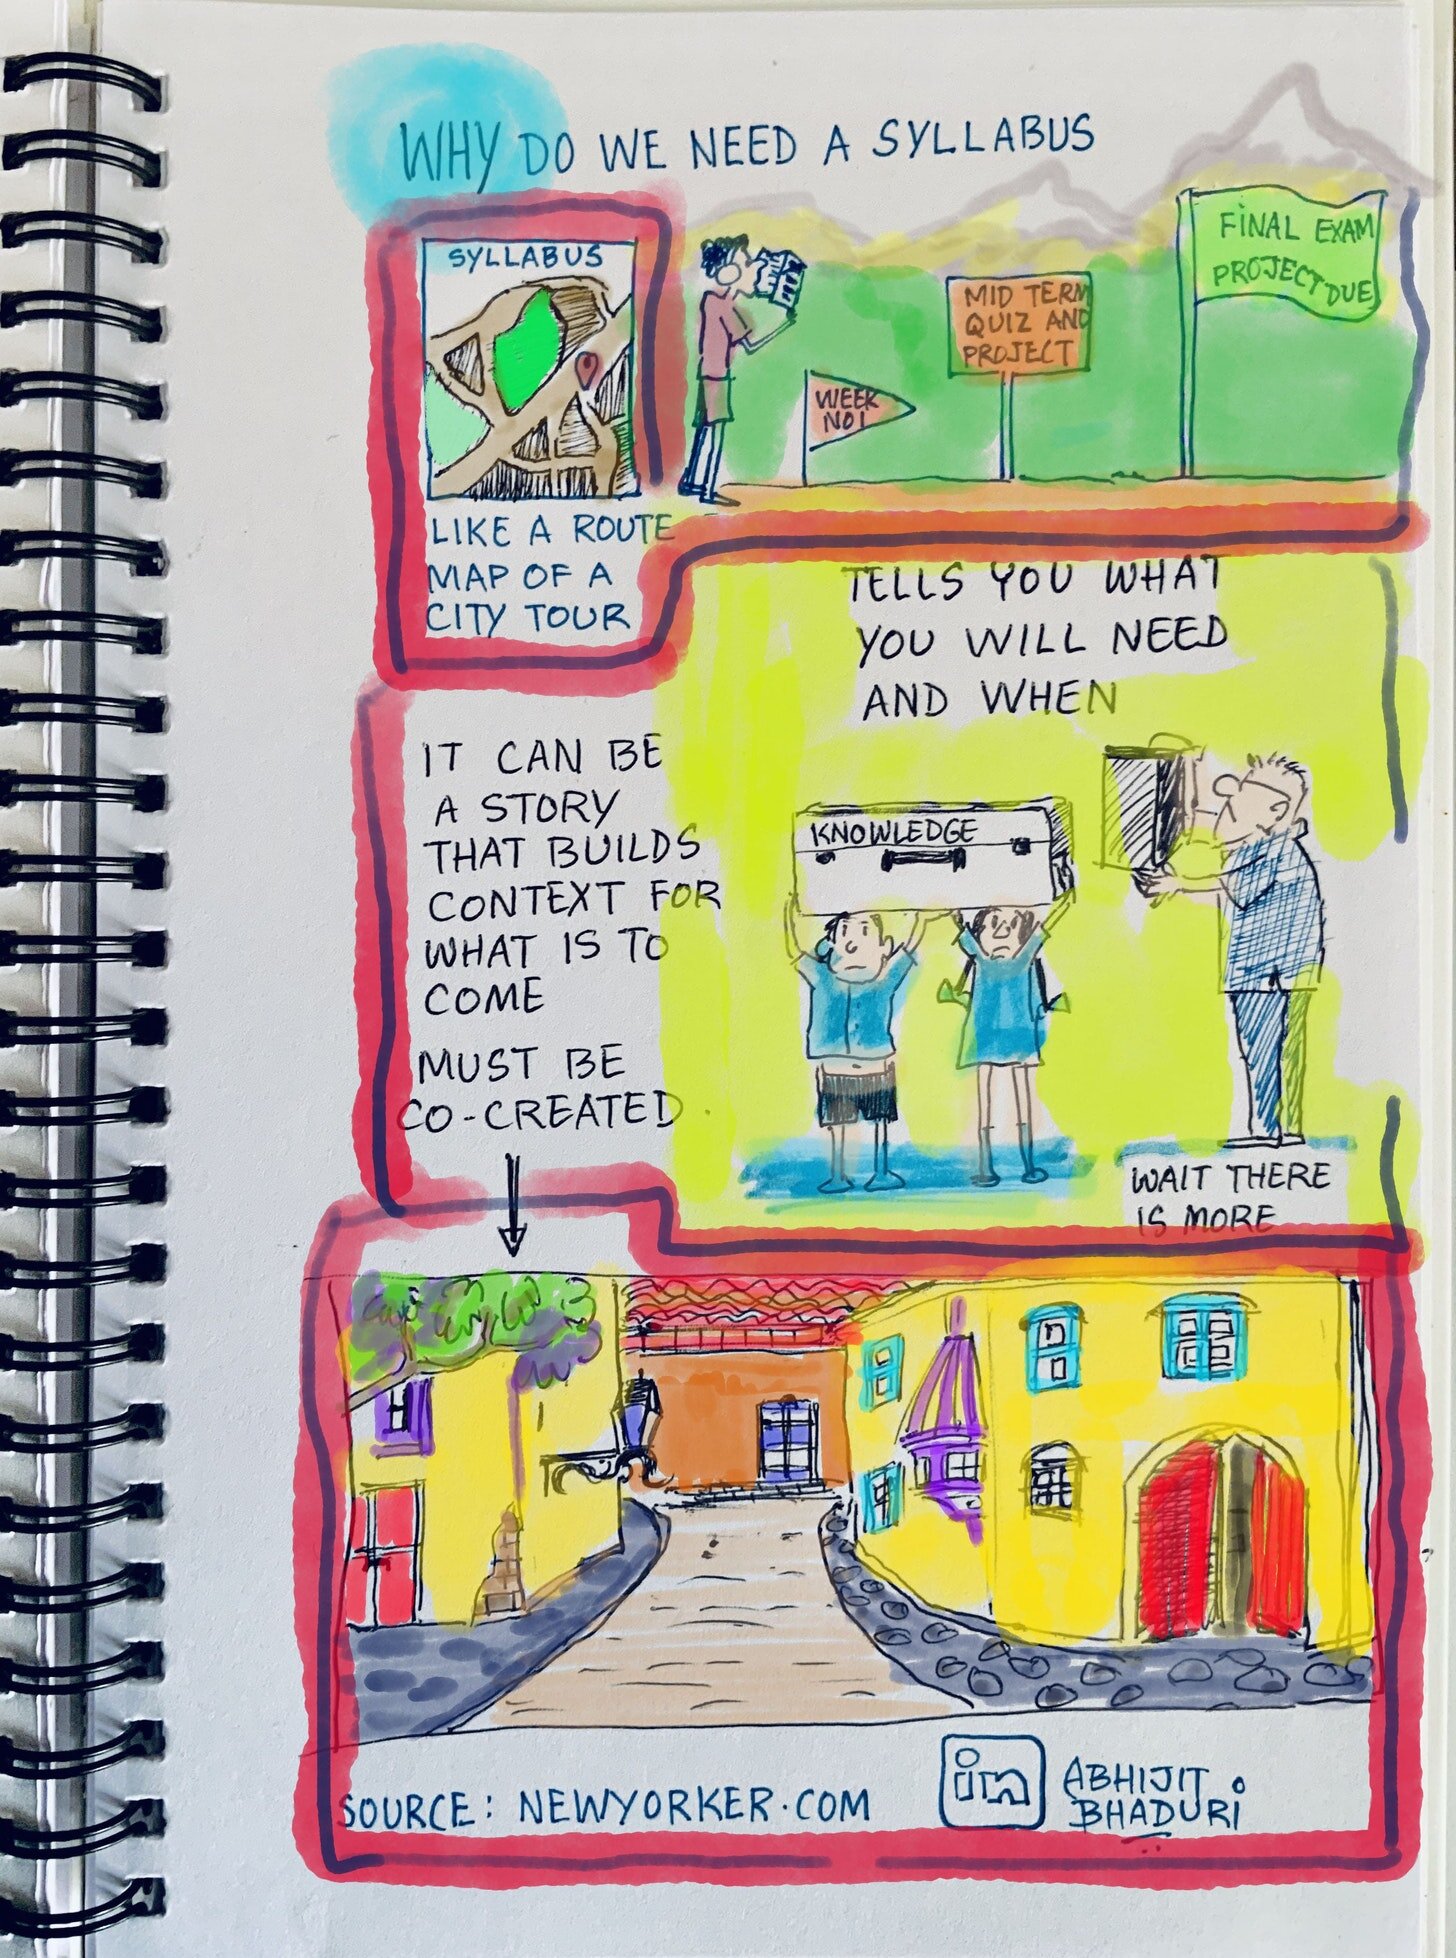 WHY DO WE NEED A SYLLABUS
SYLLABUS
LIKE A ROUTE
MAP OF A
CITY TOUR
WEEK
NO1
MID TERM
QUIZ AND
PROJECT
FINAL EXAM
PROJECT DUE
TELLS YOU WHAT
YOU WILL NEED
AND WHEN
IT CAN BE
A STORY
THAT BUILDS
CONTEXT FOR
WHAT IS TO
COME
MUST BE
CO-CREATED.
KNOWLEDGE
WAIT THERE
IS MORE
SOURCE: NEWYORKER.COM
in
ABHIJIT
BHADURI